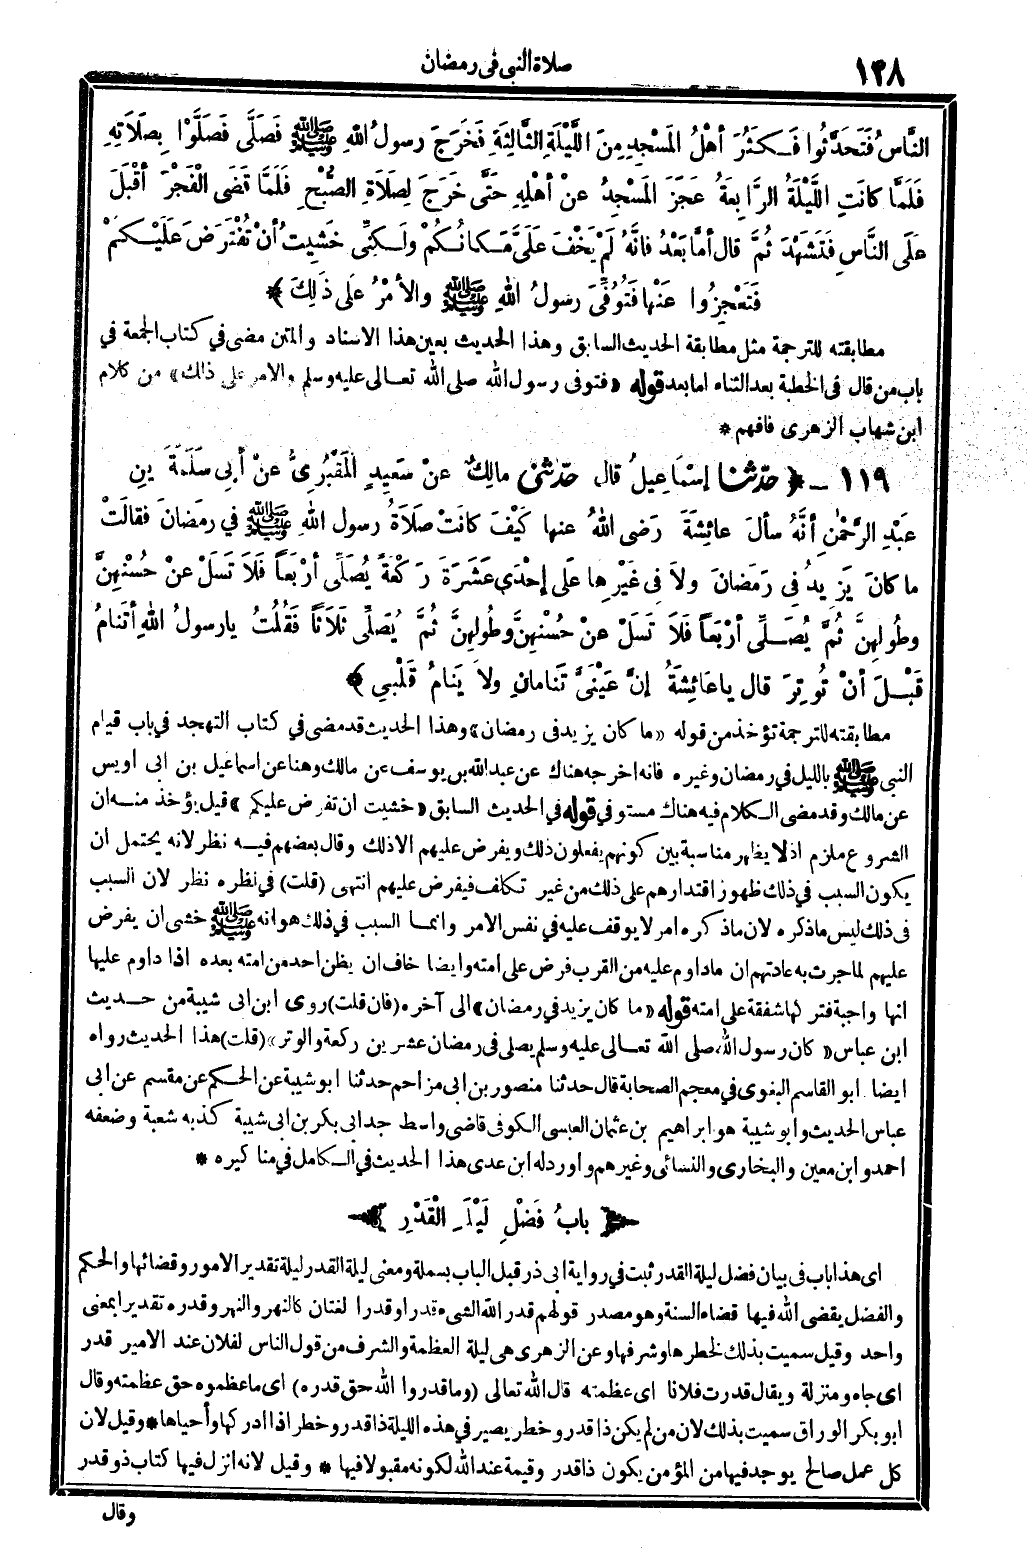 ١٢٨
صلاة النبي في رمضان
النَّاسُ فَتَحَدَّثُوا فَكَثُرَ أهْلُ المَسْجِدِ مِنَ اللَّيْلَةِ الثَّالِثَةِ فَخَرَجَ رسولُ اللهِ ﷺ فَصَلَّى فَصَلَّوْا بِصَلَاتِهِ
فَلَمَّا كانَتِ اللَّيْلَةُ الرَّابِعَةُ عَجَزَ المَسْجِدُ عنْ أهْلِهِ حَتَّى خَرَجَ لِصَلَاةِ الصُّبْحِ فَلَمَّا قَضَى الْفَجْرَ أقْبَلَ
عَلَى النَّاسِ فَتَشَهَّدَ ثُمَّ قال أمَّا بَعْدُ فانَّهُ لَمْ يَخْفَ عَلَيَّ مَكانُكُمْ ولَكِنِّي خَشِيتُ أنْ تُفْتَرَضَ عَلَيْكمْ
فَتَعْجِزُوا عَنْها فَتُوُفِّيَ رسولُ اللهِ ﷺ والأمْرُ على ذَلِكَ ﴾
مطابقته للترجمة مثل مطابقة الحديث السابق وهذا الحديث بعين هذا الاسناد والمتن مضى في كتاب الجمعة في
باب من قال في الخطبة بعد الثناء اما بعد قوله «فتوفى رسول الله صلى الله تعالى عليه وسلم والامر على ذلك» من كلام
ابن شهاب الزهرى فافهم *
١١٩ ـ ﴿ حدّثنا إسْمَاعِيلُ قال حدّثني مالِكٌ عنْ سَعِيدٍ المَقْبُرِيِّ عنْ أبي سَلَمَةَ بنِ
عَبْدِ الرَّحْمٰنِ أنَّهُ سألَ عائِشَةَ رضى اللهُ عنها كَيْفَ كانَتْ صَلَاةُ رسولِ اللهِ ﷺ في رمضانَ فقالَتْ
ما كانَ يَزِيدُ في رَمَضَانَ ولاَ في غَيْرِها عَلَى إحْدَى عَشَرَةَ رَكْعَةً يُصَلِّي أرْبَعاً فَلاَ تَسَلْ عنْ حُسْنِهِنَّ
وطُولِهِنَّ ثُمَّ يُصَلِّي أرْبَعاً فَلاَ تَسَلْ عنْ حُسْنِهِنَّ وطُولِهِنَّ ثُمَّ يُصَلِّي ثَلَاثاً فَقُلْتُ يارسولَ اللهِ أتَنامُ
قَبْلَ أنْ تُوتِرَ قال ياعَائِشَةُ إنَّ عَيْنَيَّ تَنامانِ ولاَ يَنامُ قَلْبِي ﴾
مطابقته للترجمة تؤخذ من قوله «ما كان يزيد في رمضان» وهذا الحديث قد مضى في كتاب التهجد في باب قيام
النبي ﷺ بالليل في رمضان وغيره فانه اخرجه هناك عن عبد الله بن يوسف عن مالك وهنا عن اسماعيل بن ابى أويس
عن مالك وقد مضى الكلام فيه هناك مستوفى قوله في الحديث السابق «خشيت ان تفرض عليكم» قيل يؤخذ منه ان
الشروع ملزم اذ لا يظهر مناسبة بين كونهم يفعلون ذلك ويفرض عليهم الا ذلك وقال بعضهم فيه نظر لانه يحتمل ان
يكون السبب في ذلك ظهور اقتدارهم على ذلك من غير تكلف فيفرض عليهم انتهى (قلت) في نظره نظر لان السبب
في ذلك ليس ما ذكره لان ما ذكره امر لا يوقف عليه في نفس الامر وانما السبب في ذلك هو انه ﷺ خشى ان يفرض
عليهم لما جرت به عادتهم ان ما داوم عليه من القرب فرض على امته وايضا خاف ان يظن احد من امته بعده اذا داوم عليها
انها واجبة فتركها شفقة على امته قوله «ما كان يزيد في رمضان» الى آخره (فان قلت) روى ابن ابى شيبة من حديث
ابن عباس «كان رسول الله صلى الله تعالى عليه وسلم يصلى في رمضان عشرين ركعة والوتر» (قلت) هذا الحديث رواه
ايضا ابو القاسم البغوى في معجم الصحابة قال حدثنا منصور بن ابى مزاحم حدثنا ابو شيبة عن الحكم عن مقسم عن ابن
عباس الحديث وابو شيبة هو ابراهيم بن عثمان العبسى الكوفى قاضى واسط جد ابى بكر بن ابى شيبة كذبه شعبة وضعفه
احمد وابن معين والبخارى والنسائى وغيرهم واورد له ابن عدى هذا الحديث في الكامل في مناكيره *
بابُ فَضْلِ لَيْلَةِ الْقَدْرِ
اى هذا باب في بيان فضل ليلة القدر ثبت في رواية ابى ذر قبل الباب بسملة ومعنى ليلة القدر ليلة تقدير الامور وقضائها والحكم
والفضل يقضى الله فيها قضاء السنة وهو مصدر قولهم قدر الله الشىء قدرا وقدرا لغتان كالنهر والنهر وقدره تقديرا بمعنى
واحد وقيل سميت بذلك لخطرها وشرفها وعن الزهرى هى ليلة العظمة والشرف من قول الناس لفلان عند الامير قدر
اى جاه ومنزلة ويقال قدرت فلانا اى عظمته قال الله تعالى (وما قدروا الله حق قدره) اى ما عظموه حق عظمته وقال
ابو بكر الوراق سميت بذلك لان من لم يكن ذا قدر وخطر يصير في هذه الليلة ذا قدر وخطر اذا ادركها وأحياها * وقيل لان
كل عمل صالح يوجد فيها من المؤمن يكون ذا قدر وقيمة عند الله لكونه مقبولا فيها * وقيل لانه انزل فيها كتاب ذو قدر
وقال